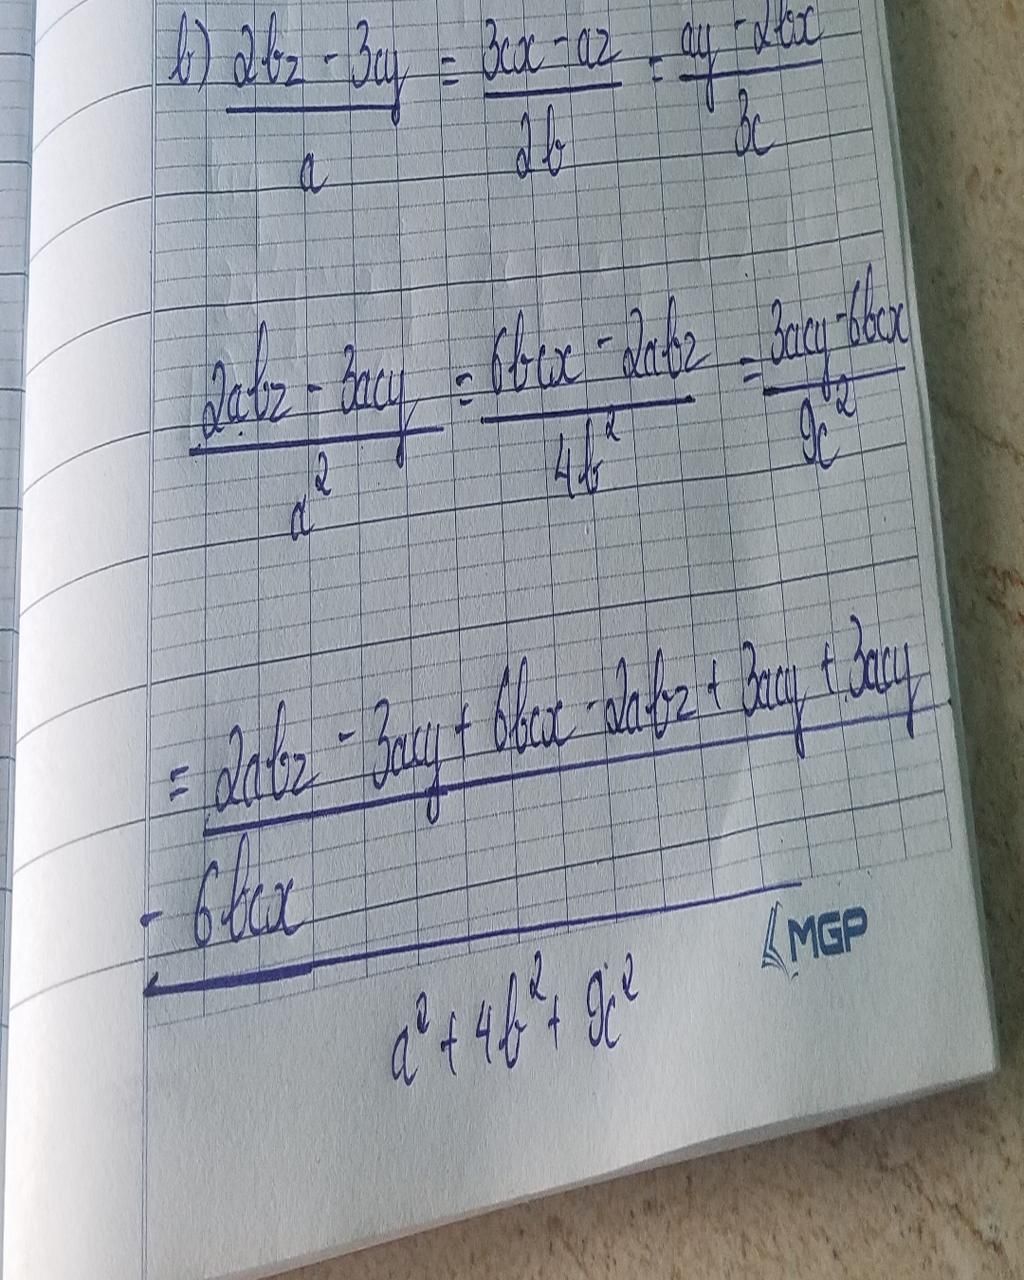 b) (2bz - 3cy)/a = (3cx - az)/2b = (ay - 2bx)/3c
(2abz - 3acy)/a² = (6bcx - 2abz)/4b² = (3acy - 6bcx)/9c²
= 2abz - 3acy + 6bcx - 2abz + 3acy + 3acy
- 6bcx
MGP
a² + 4b² + 9c²